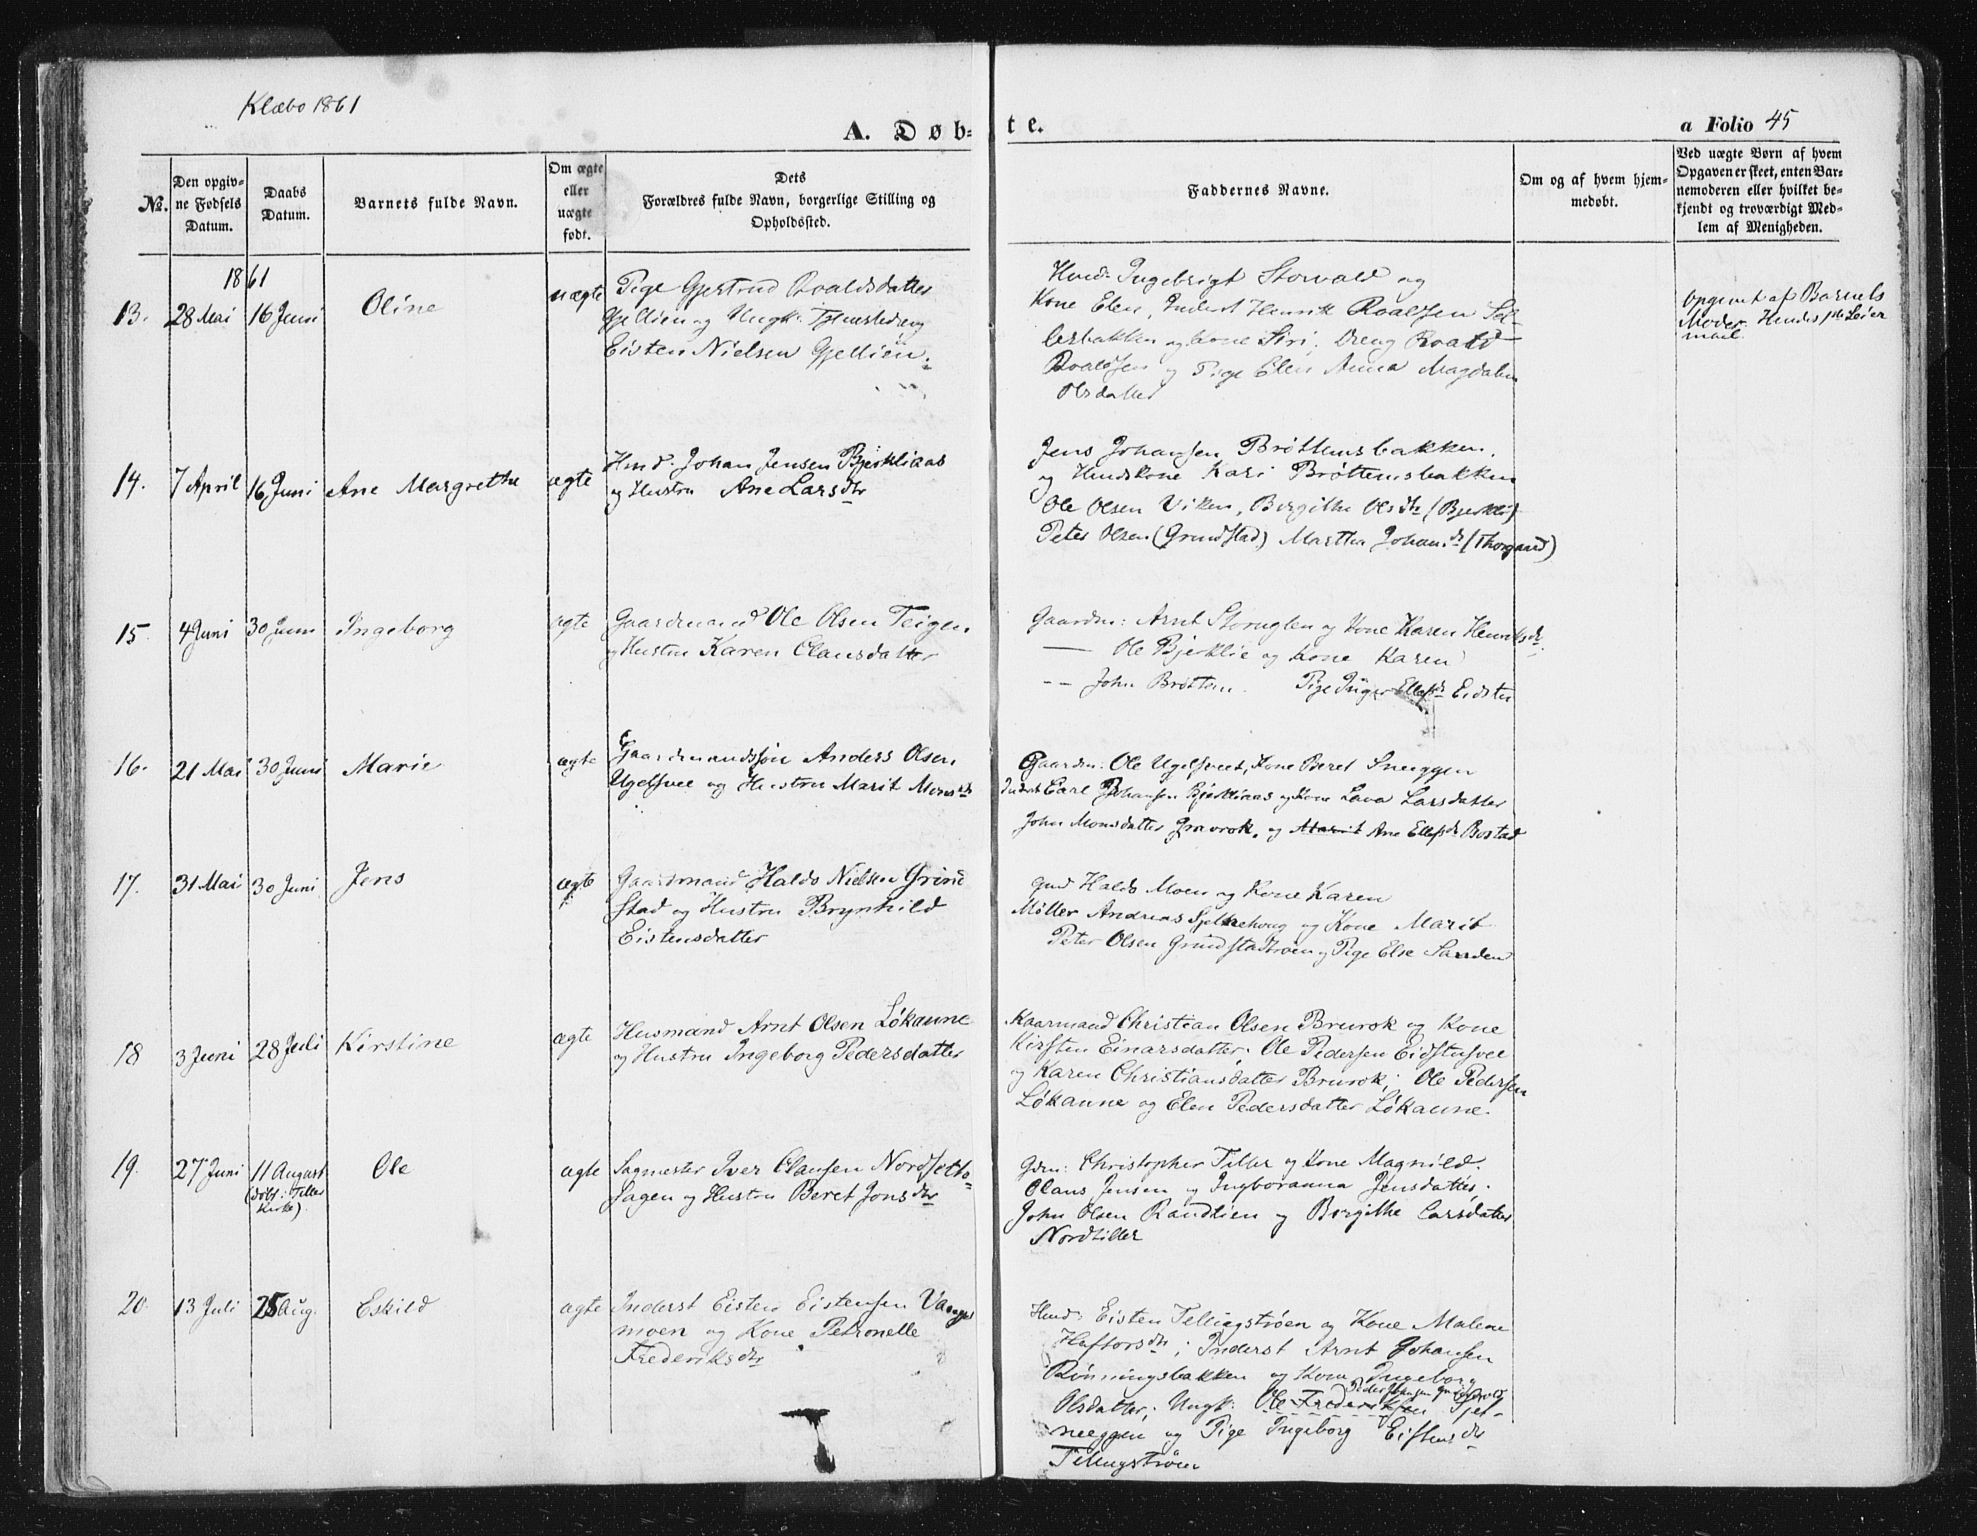 Klæbo 1861
A. Døbte.
a Folio 45
No.
Den opgivne Fødsels Datum.
Daabs Datum.
Barnets fulde Navn.
Om ægte eller uægte født.
Dets Forældres fulde Navn, borgerlige Stilling og Opholdssted.
Faddernes Navne.
Om og af hvem hjemmedøbt.
Ved uægte Børn af hvem Opgaven er skeet, enten Barnemoderen eller hvilket bekjendt og troværdigt Medlem af Menigheden.
1861
13. 28 Mai 16 Juni Oline uægte
Pige Gjertrud Roaldsdatter
Gjellien og Ungk:
Eisten Nielsen Gjellien.
Hmd: Ingebrigt Storvald og
Kone Elen, Inderst Henrik Roalsen Sel-
lesbakken og Kone Siri, Dreng Roald
Roaldsen og Pige Elen Anna Magdalen
Olsdatter
Opgivet af Barnets
Moder. Hendes 1ste Leier
maal.
14. 7 April 16 Juni Ane Margrethe ægte
Hmd. Johan Jensen Bjerkliaas
og Hustru Ane Larsdtr
Jens Johansen Brøttemsbakken.
og Hmdskone Kari Brøttemsbakken
Ole Olsen Viken, Birgithe Olsdtr (Bjerkli)
Peter Olsen (Grundstad) Martha Johansdr (Thorgaard)
15. 4 Juni 30 Juni Ingeborg ægte
Gaardmand Ole Olsen Teigen
og Hustru Karen Clausdatter
Gaardm: Arnt Storuglen og Kone Karen Henriksdr.
— Ole Bjerklie og Kone Karen
-- John Brøttem. Pige Inger Ellefsdr Eidsten
16. 21 Mai 30 Juni Marie ægte
Gaardmandssøn Anders Olsen
Ugelsvee og Hustru Marit Monsdr
Gaardm: Ole Ugelsveet, Kone Beret Sneeggen
Inderst Carl Johansen Bjerkliaas og Kone Lava Larsdatter
John Monsdatter Gravrok, og Marit Ane Ellefsdr Bostad
17. 31 Mai 30 Juni Jens ægte
Gaardmand Haldo Nielsen Grind
stad og Hustru Brynhild
Eistensdatter
Gmd Haldo Moen og Kone Karen
Møller Andreas Sjelnehoug og Kone Marit
Peter Olsen Grindstadtrøen og Pige Else Sanden
18 3 Juni 28 Juli Kirstine ægte
Husmand Arnt Olsen Løkaune
og Hustru Ingeborg Pedersdatter
Kaarmand Christian Olsen Brurok og Kone
Kirsten Einarsdatter. Ole Pedersen Eidstusvee
og Karen Christiansdatter Brurok; Ole Pedersen
Løkaune og Elen Pedersdatter Løkaune.
19. 27 Juni 11 August Ole ægte
(døbt i Tiller
Kirke).
Sagmester Iver Clausen Nordsets-
sagen og Hustru Beret Jonsdtr
Gdm: Christopher Tiller og Kone Magnild.
Olaus Jensen og Ingboranna Jensdatter.
John Olsen Randlien og Birgithe Larsdatter
Nordtiller
20. 13 Juli 25 Aug. Eskild ægte
Inderst Eisten Eistensen Vangs
moen og Kone Petronelle
Frederiksdtr
Hmd: Eisten Tellugstrøen og Kone Malene
Haftorsdtr; Inderst Arnt Johansen
Rønningsbakken og Kone Ingeborg
Olsdatter; Ungk: Ole Frederiksen Sjel-
neeggen og Pige Ingeborg Eistensdr
Tellugstrøen